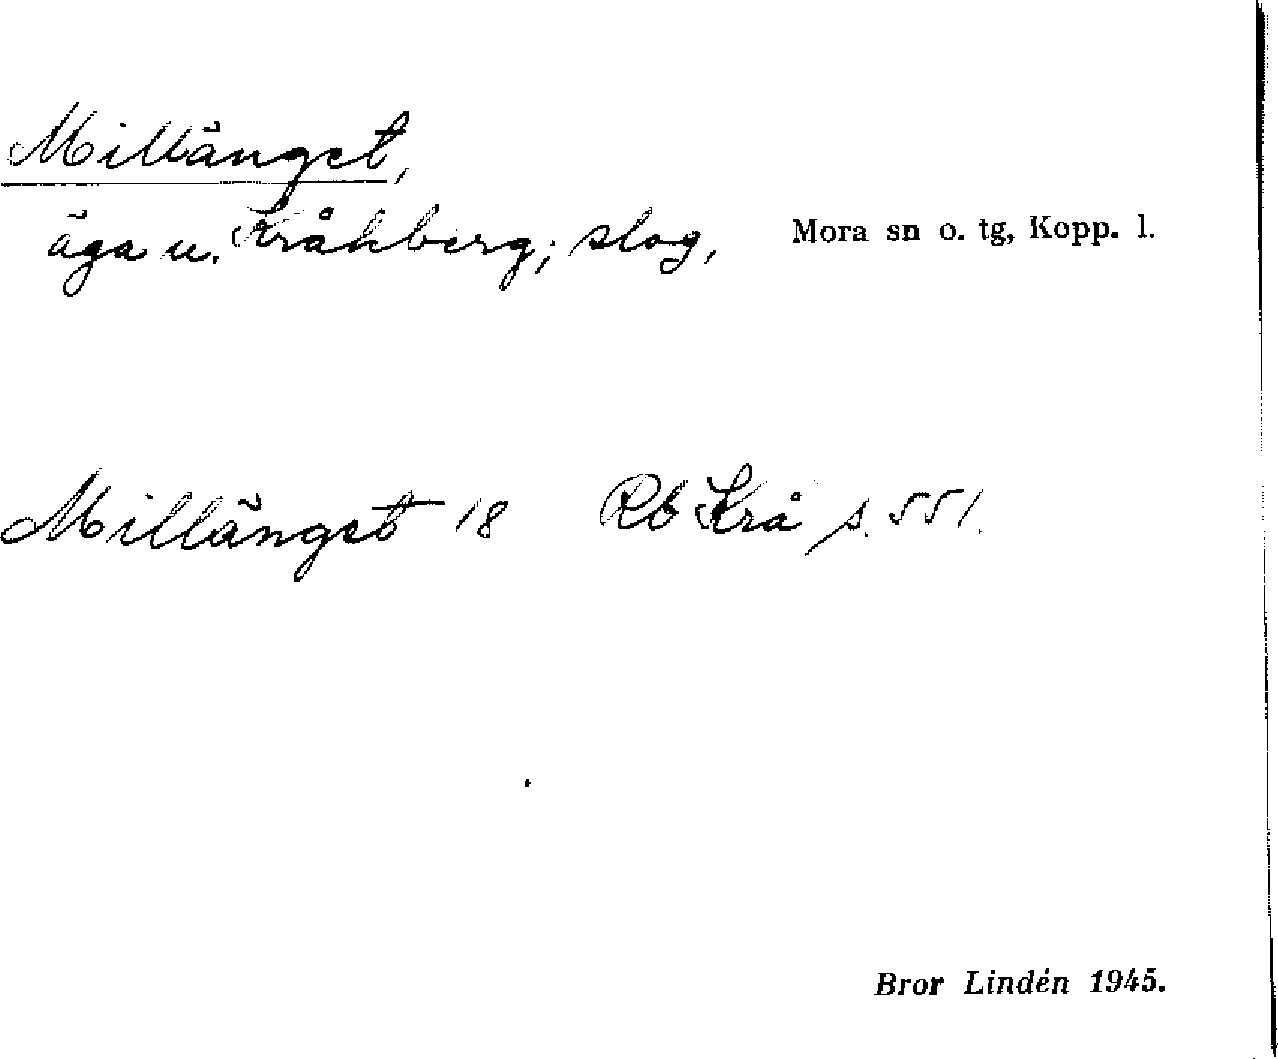 Millänget,
äga u. Kråkberg; slog, Mora sn o. tg, Kopp. l.
Millänget 18 Rb Krå s. 551.
Bror Lindén 1945.